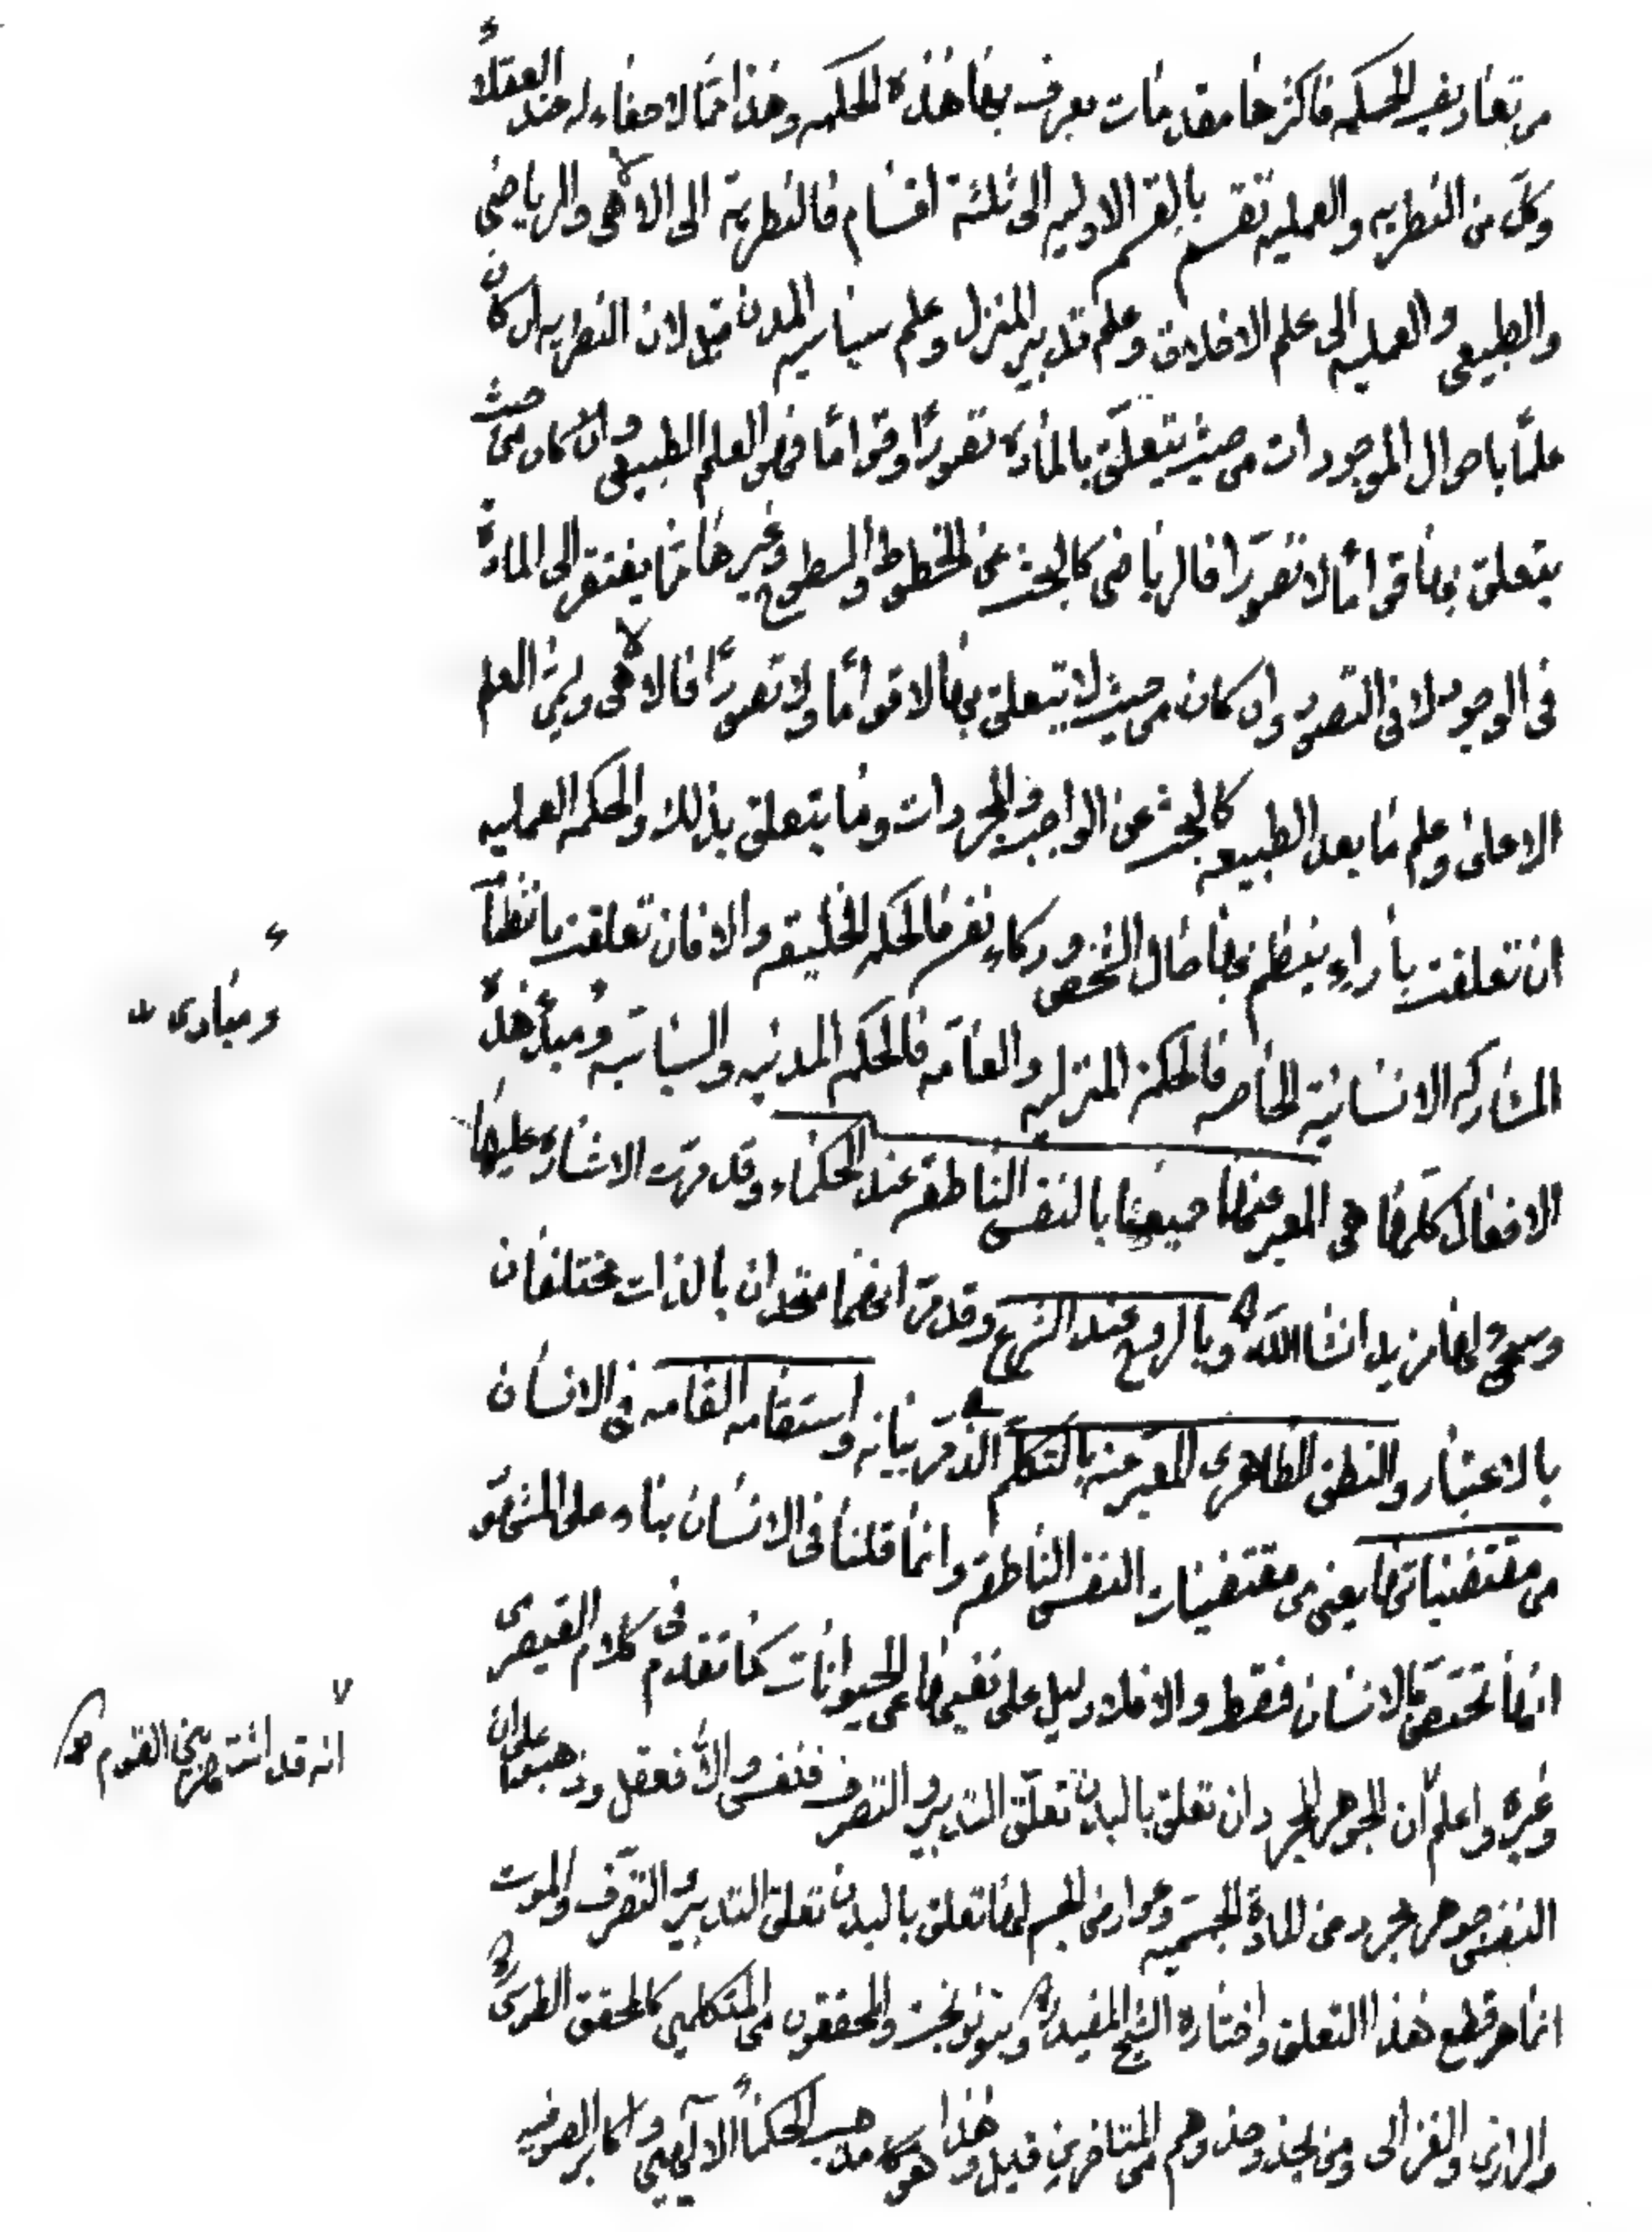 من تعاريف الحكمه فاكثرها مقدمات يعرف بها هذه الحكمه وهذا مما لا خفاء له عند العقلاء
وكل من النظريه والعمليه تقسم بالقسم الاوليه الى ثلثة اقسام فالنظرية الى الالاهى والرياضى
والطبيعى والعمليه الى علم الاخلاق وعلم تدبير المنزل وعلم سياسيه المدن قيل لان النظريه ان كان
علما باحوال الموجودات من حيث يتعلق بالمادة تصورا وقواما فهو العلم الطبيعى وان كان من حيث
يتعلق بها قواما لا تصورا فالرياضى كالبحث عن الخطوط والسطوح وغيرها مما يفتقر الى المادة
فى الوجود لا فى التصور وان كان من حيث لا يتعلق بها لا قواما ولا تصورا فالالاهى ويسمى العلم
الاعلى وعلم ما بعد الطبيعه كالبحث عن الواجب والمجردات وما يتعلق بذلك والحكمه العمليه
ان تعلقت بأراء ينتظم بها حال الشخص وزكاء نفسه فالحكمه الخلقيه والا فان تعلقت بانتظام
المشاركه الانسانية الخاصه فالحكمة المنزليه والعامه فالحكمه المدنيه والسياسيه ومبدء هذه
ومبادى
الافعال كلها هى المعبر عنها جميعها بالنفس الناطقه عند الحكماء وقد مرت الاشاره عليها
وسيجئ لها مزيد انشاالله وبالروح عند الشرع وقد مر انهما متحدان بالذات مختلفان
بالاعتبار والنطق الظاهرى المعبر عنه بالتكلم الذى مر بيانه واستقامه القامه فى الانسان
من مقتضياتها يعنى من مقتضيات النفس الناطقه وانما قلنا فى الانسان بناء على المشهور
انها تختص بالانسان فقط والا فلا دليل على نفيها عن الحيوانات كما تقدم فى كلام القيصرى
وغيره واعلم أن الجوهر المجرد ان تعلق بالبدن تعلق التدبير والتصرف فنفس والا فعقل وذهبوا على ان
انه قد اشتهر بين القوم
النفس جوهر مجرد عن المادة الجسميه وعوارض الجسم لها تعلق بالبدن تعلق التدبير والتصرف والموت
انما هو قطع هذا التعلق واختاره الشيخ المفيد وبنو نوبخت والمحققون من المتكلمين كالمحقق الطوسى
والرازى والغزالى ومن يحذو حذوهم من المتاخرين قيل وهذا هو مذهب الحكماء الالهيين واكابر الصوفيه